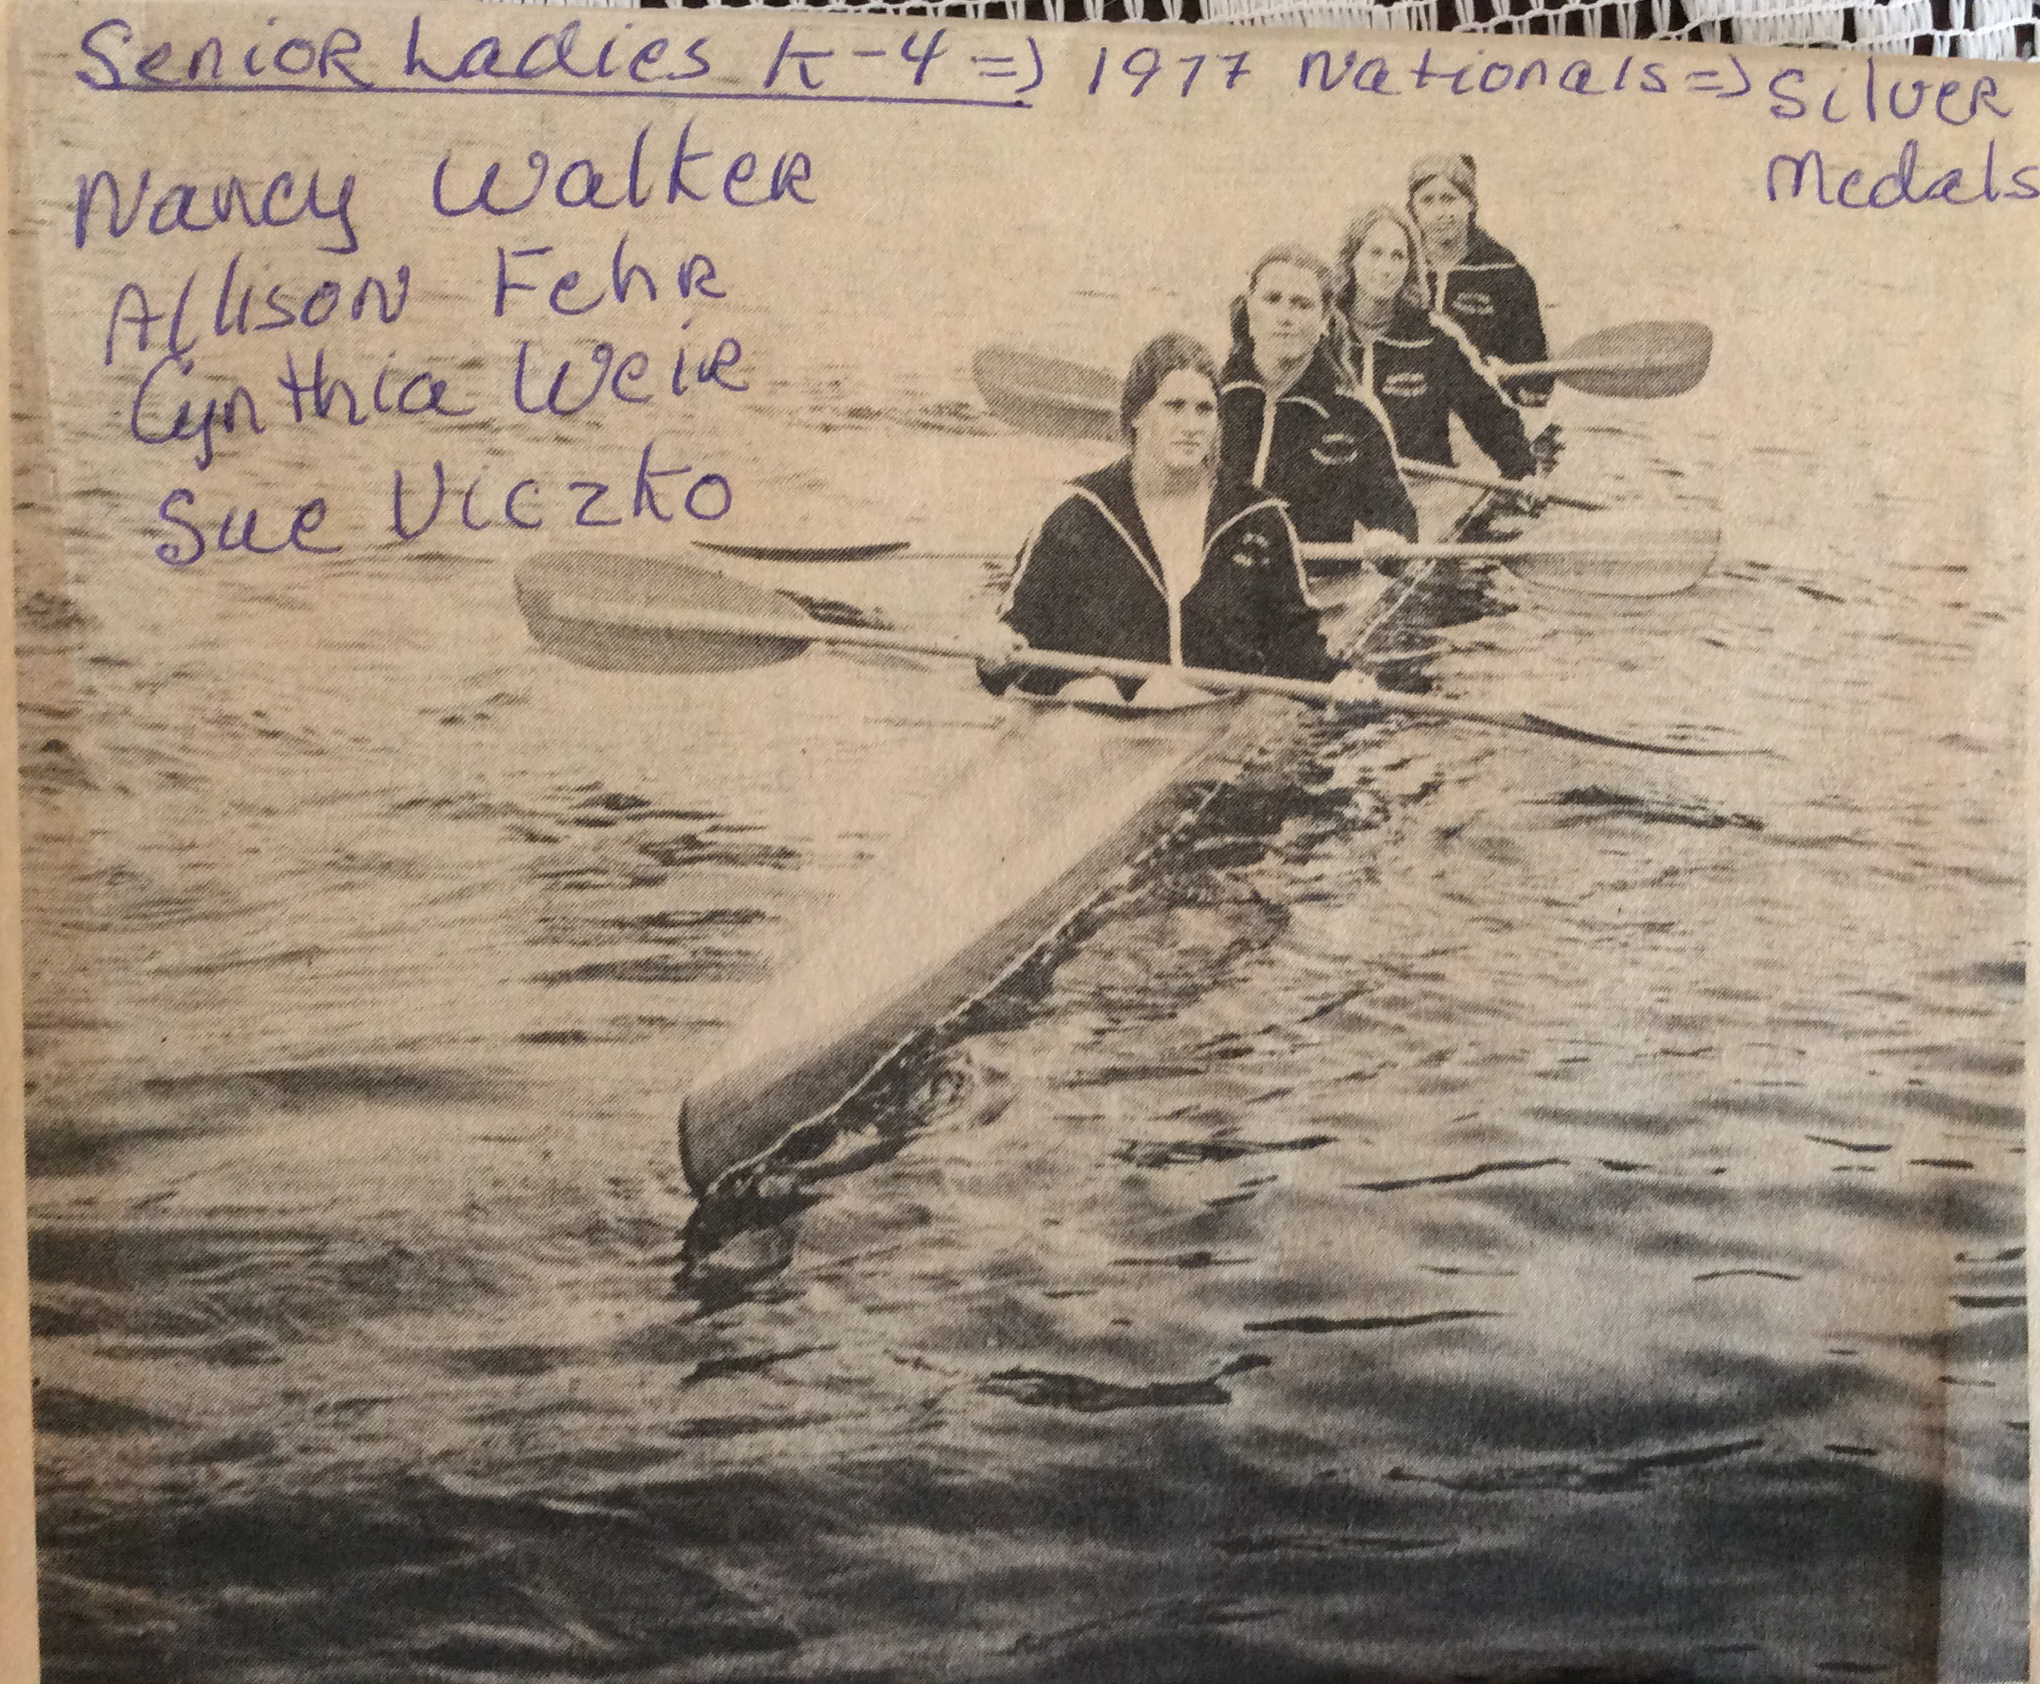 Senior Ladies K-4 => 1977 Nationals => Silver
Medals
Nancy Walker
Allison Fehr
Cynthia Weir
Sue Viczko